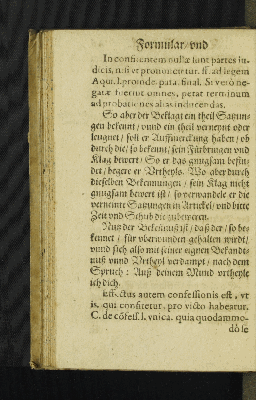 Formular/vnd
In confitentem nullæ sunt partes iu-
dicis, nisi vt pronuncietur. ff. ad legem
Aqui. l. proinde. para. final. Si verò ne-
gatæ fuerint omnes, petat terminum
ad probationes alias inducendas.
So aber der Beklagt ein theil Satzun-
gen bekennt / vnnd ein theil verneynt oder
leugnet / soll er Auffmerckung haben / ob
durch die / so bekennt / sein Fürbringen vnd
Klag bewert / So er das gnugsam befin-
det / begere er Vrtheyls. Wo aber durch
dieselben Bekennungen / sein Klag nicht
gnugsam bewert ist / so verwandele er die
verneinte Satzungen in Artickel / vnd bitte
Zeit vnd Schub die zubeweren.
Nutz der Bekäntnuß ist / daß der / so be-
kennet / für vberwunden gehalten würdt /
vnnd sich also mit seiner eignen Bekandt-
nuß vnnd Vrtheyl verdampt / nach dem
Spruch: Auß deinem Mund vrtheyle
ich dich.
Effectus autem confessionis est, vt
is, qui confitetur, pro victo habeatur.
C. de cōfess. l. vnica. quia quodammo-
dò se